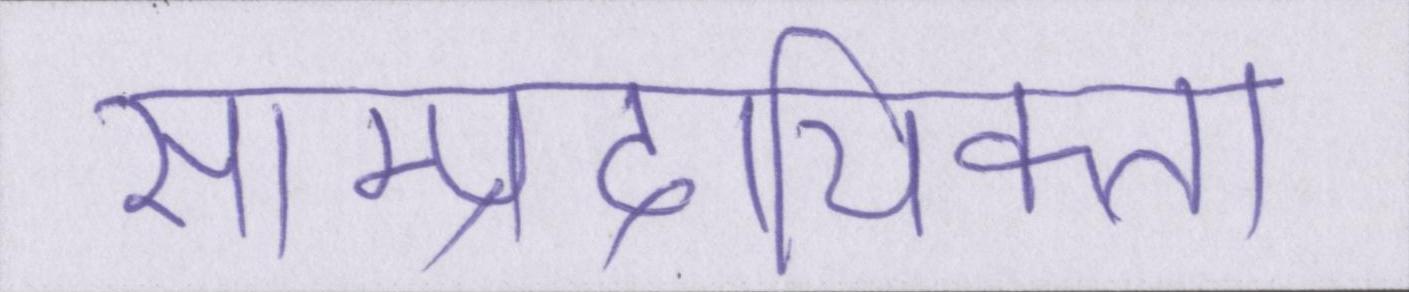 साम्प्रदायिकता